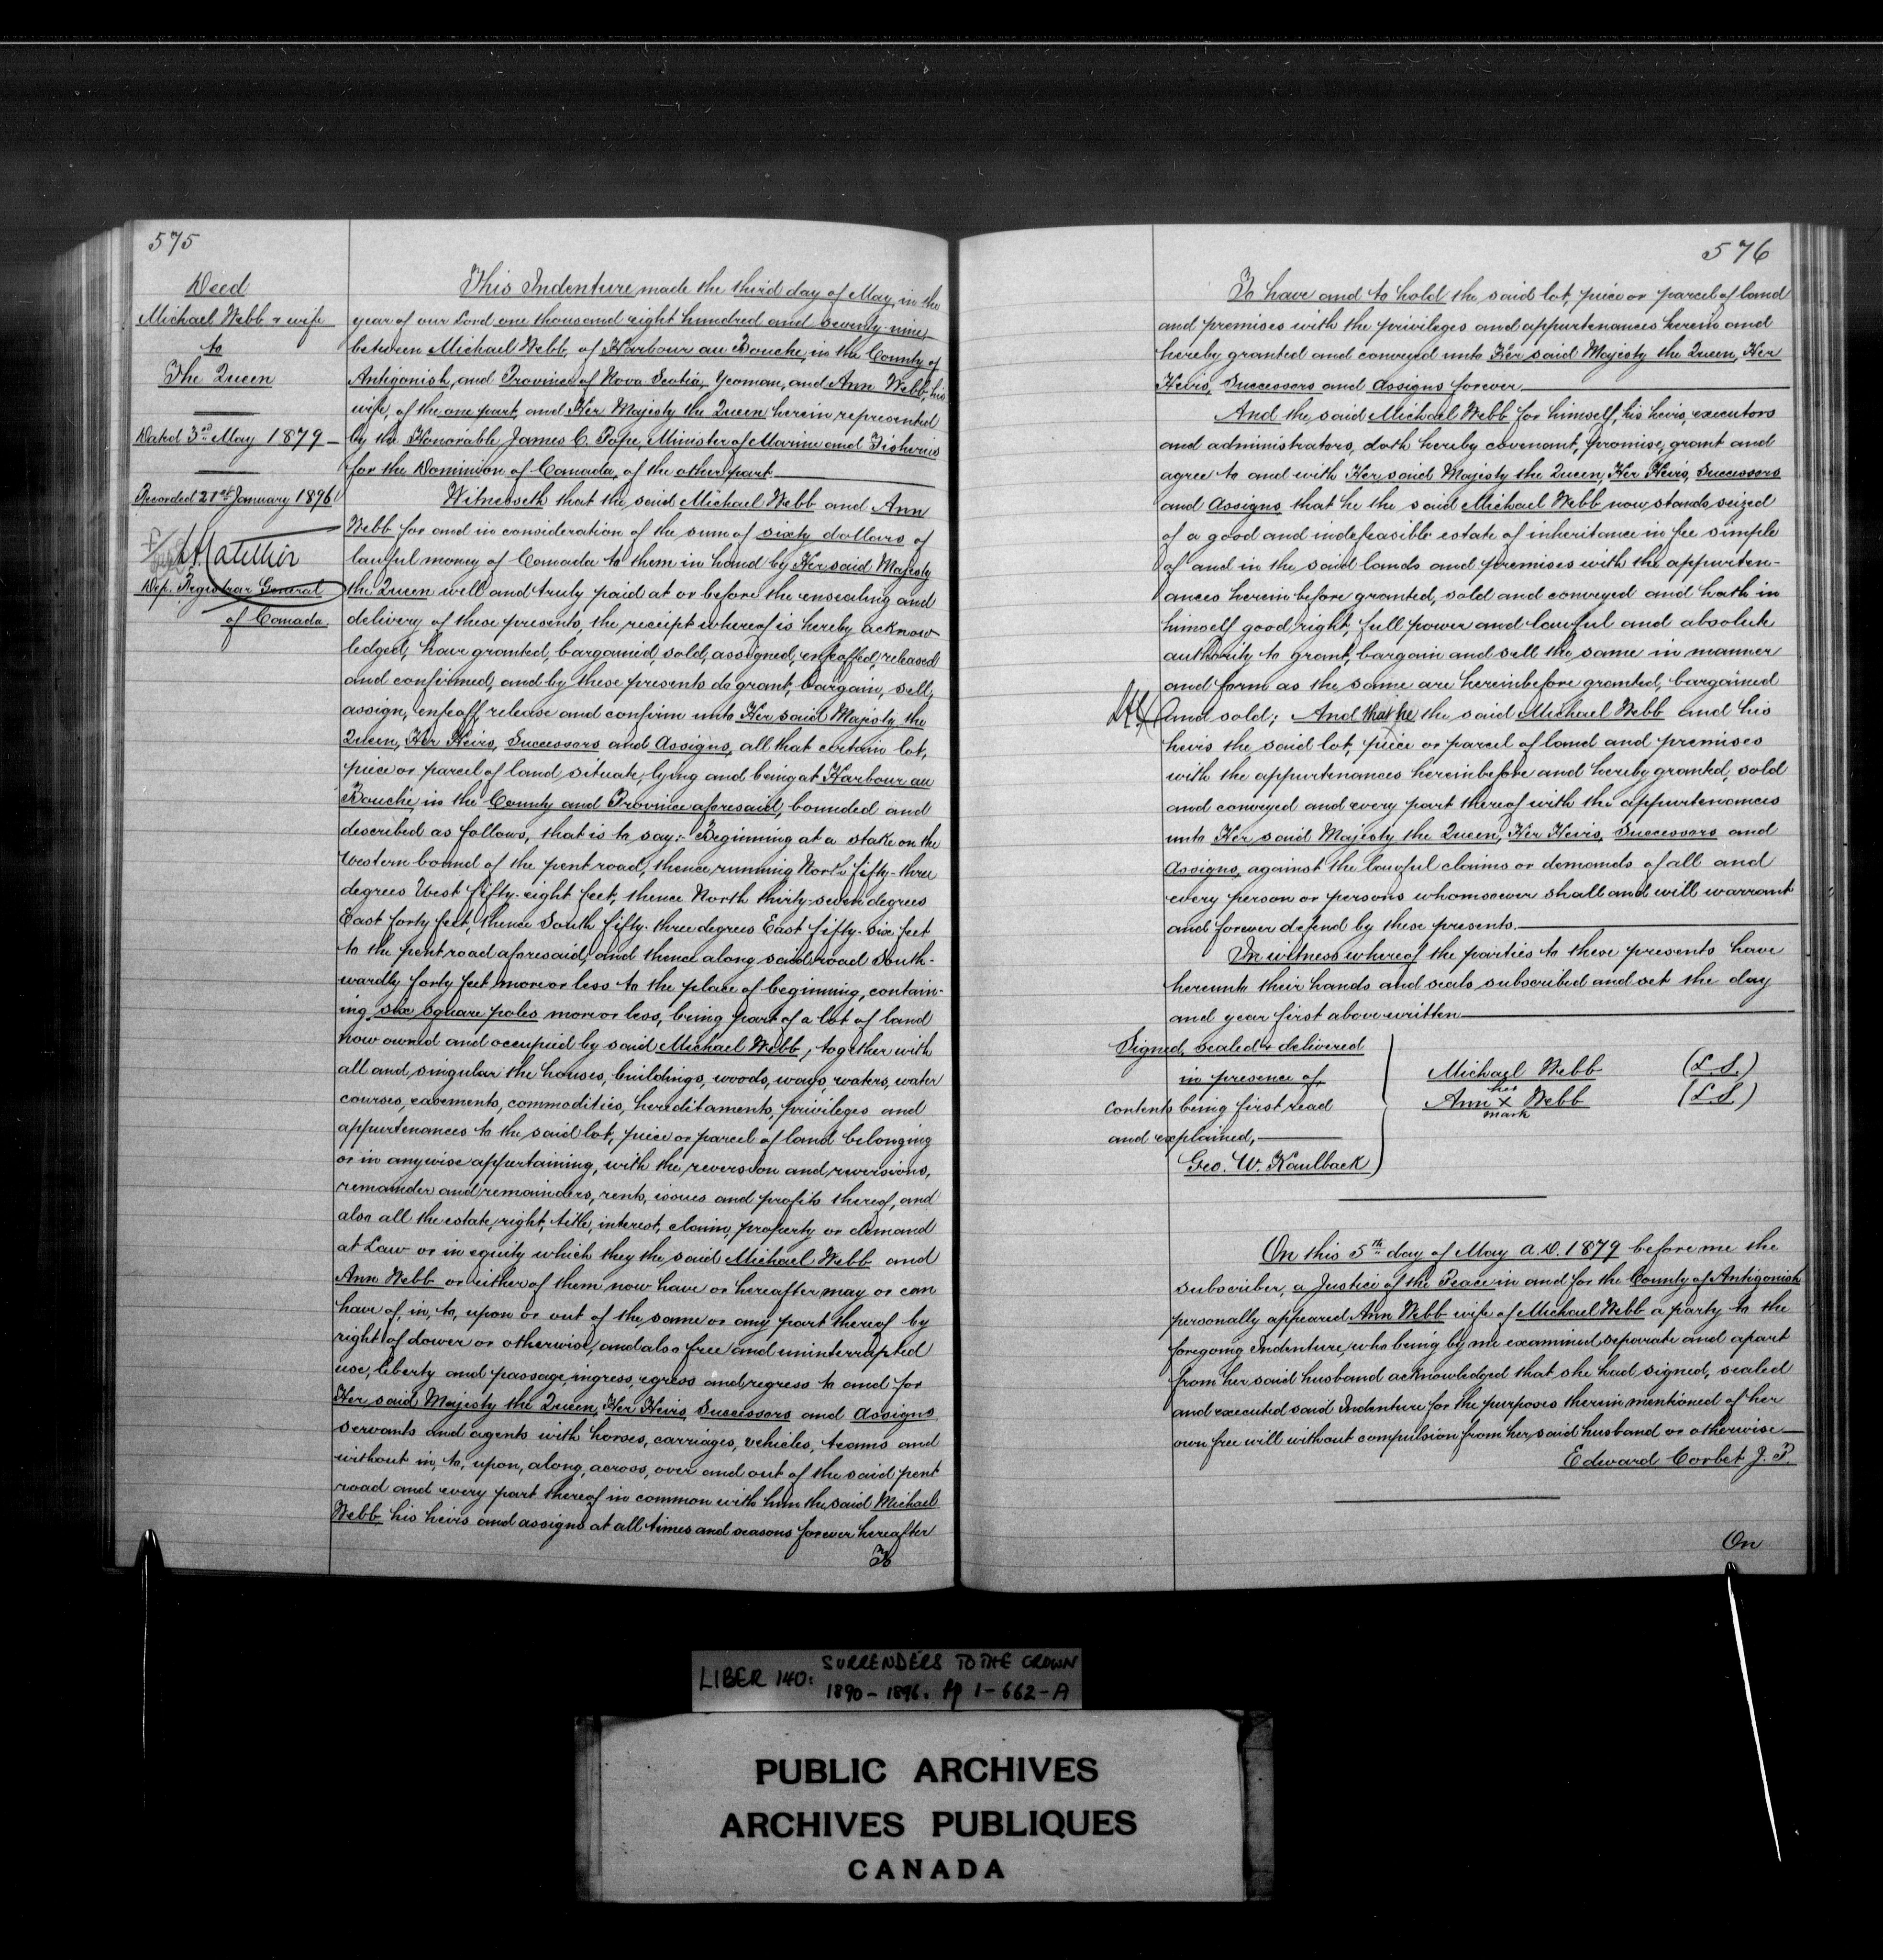 575
Deed
Michael Webb & wife
to
The Queen
Dated 3rd May 1879
Recorded 21st January 1896
Dep. Registrar General
of Canada.
This Indenture made the third day of May, in the
year of our Lord one thousand eight hundred and seventy-nine,
between Michael Webb, of Harbour au Bouche, in the County of
Antigonish, and Province of Nova Scotia, Yeoman, and Ann Webb, his
wife, of the one part, and Her Majesty the Queen herein represented
by the Honorable James C. Pope, Minister of Marine and Fisheries
for the Dominion of Canada, of the other part.
Witnesseth that the said Michael Webb and Ann
Webb for and in consideration of the sum of sixty dollars of
lawful money of Canada to them in hand by Her said Majesty
the Queen well and truly paid at or before the ensealing and
delivery of these presents, the receipt whereof is hereby acknow-
ledged, have granted, bargained, sold, assigned, enfeoffed, released
and confirmed, and by these presents do grant, bargain, sell,
assign, enfeoff, release and confirm unto Her said Majesty the
Queen, Her Heirs, Successors and Assigns, all that certain lot,
piece or parcel of land situate, lying and being at Harbour au
Bouche in the County and Province aforesaid, bounded and
described as follows, that is to say:- Beginning at a stake on the
Western bound of the pent road, thence running North fifty-three
degrees West fifty-eight feet, thence North thirty-seven degrees
East forty feet, thence South fifty-three degrees East fifty-six feet
to the pent road aforesaid, and thence along said road South-
wardly forty feet more or less to the place of beginning, contain-
ing six square poles more or less, being part of a lot of land
now owned and occupied by said Michael Webb, together with
all and singular the houses, buildings, woods, ways, waters, water
courses, easements, commodities, hereditaments, privileges and
appurtenances to the said lot, piece or parcel of land belonging
or in anywise appertaining, with the reversion and reversions,
remainder and remainders, rents, issues and profits thereof, and
also all the estate, right, title, interest, claim, property or demand
at Law or in equity which they the said Michael Webb and
Ann Webb or either of them now have or hereafter may or can
have of, in, to, upon or out of the same or any part thereof by
right of dower or otherwise, and also free and uninterrupted
use, liberty and passage, ingress, egress and regress to and for
Her said Majesty the Queen, Her Heirs, Successors and Assigns
servants and agents with horses, carriages, vehicles, teams and
without in, to, upon, along, across, over and out of the said pent
road and every part thereof in common with him the said Michael
Webb, his heirs and assigns at all times and seasons forever hereafter
To
576
To have and to hold the said lot, piece or parcel of land
and premises with the privileges and appurtenances herein and
hereby granted and conveyed unto Her said Majesty the Queen, Her
Heirs, Successors and Assigns forever
And the said Michael Webb for himself, his heirs, executors
and administrators, doth hereby covenant, promise, grant and
agree to and with Her said Majesty the Queen, Her Heirs, Successors
and Assigns that he the said Michael Webb now stands seized
of a good and indefeasible estate of inheritance in fee simple
of and in the said lands and premises with the appurten-
ances herein before granted, sold and conveyed and hath in
himself good right, full power and lawful and absolute
authority to grant, bargain and sell the same in manner
and form as the same are hereinbefore granted, bargained
and sold; And that he the said Michael Webb and his
heirs the said lot, piece or parcel of land and premises
with the appurtenances hereinbefore and hereby granted, sold
and conveyed and every part thereof with the appurtenances
unto Her said Majesty the Queen, Her Heirs, Successors and
Assigns, against the lawful claims or demands of all and
every person or persons whomsoever shall and will warrant
and forever defend by these presents.
In witness whereof the parties to these presents have
hereunto their hands and seals subscribed and set the day
and year first above written
Signed, sealed & delivered
in presence of,
contents being first read
and explained,
Geo. W. Kaulback
Michael Webb (L.S.)
her
Ann X Webb (L.S.)
mark
On this 5th day of May A.D. 1879 before me the
subscriber, a Justice of the Peace in and for the County of Antigonish
personally appeared Ann Webb wife of Michael Webb a party to the
foregoing Indenture, who being by me examined separate and apart
from her said husband acknowledged that she had signed, sealed
and executed said Indenture for the purposes therein mentioned of her
own free will without compulsion from her said husband or otherwise
Edward Corbet J.P.
On
LIBER 140: SURRENDERS TO THE CROWN
1890-1896. pp 1-662-A
PUBLIC ARCHIVES
ARCHIVES PUBLIQUES
CANADA